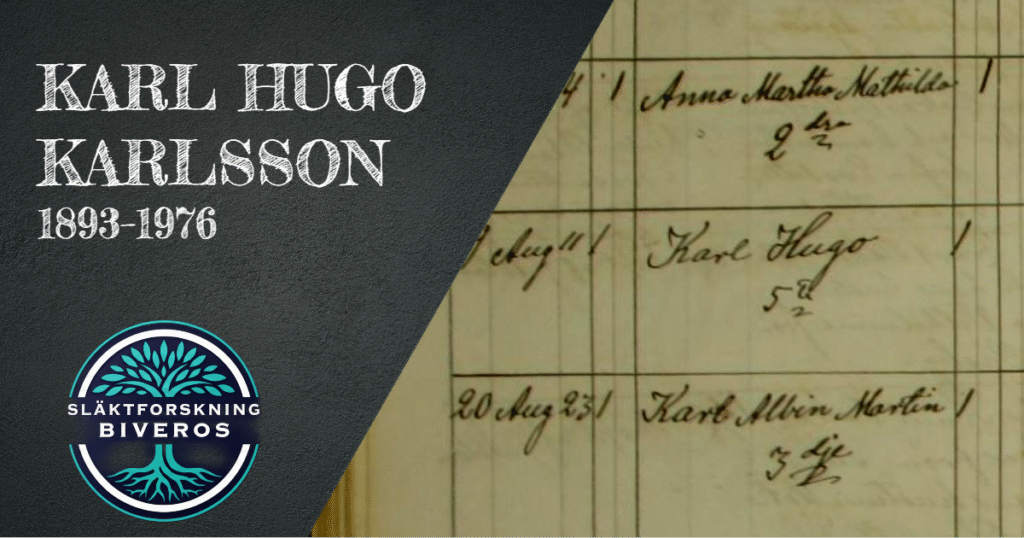 KARL HUGO
KARLSSON
1893-1976
SLÄKTFORSKNING
BIVEROS
4 1 Anna Martha Mathilda 1
2 dra
Aug 11 1 Karl Hugo 1
5
20 Aug 23 1 Karl Albin Martin 1
3 dje